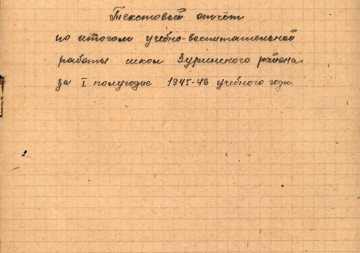 Текстовый отчёт
по итогам учебно-воспитательной
работы школ Зуринского района
за I полугодие 1945-46 учебного года.